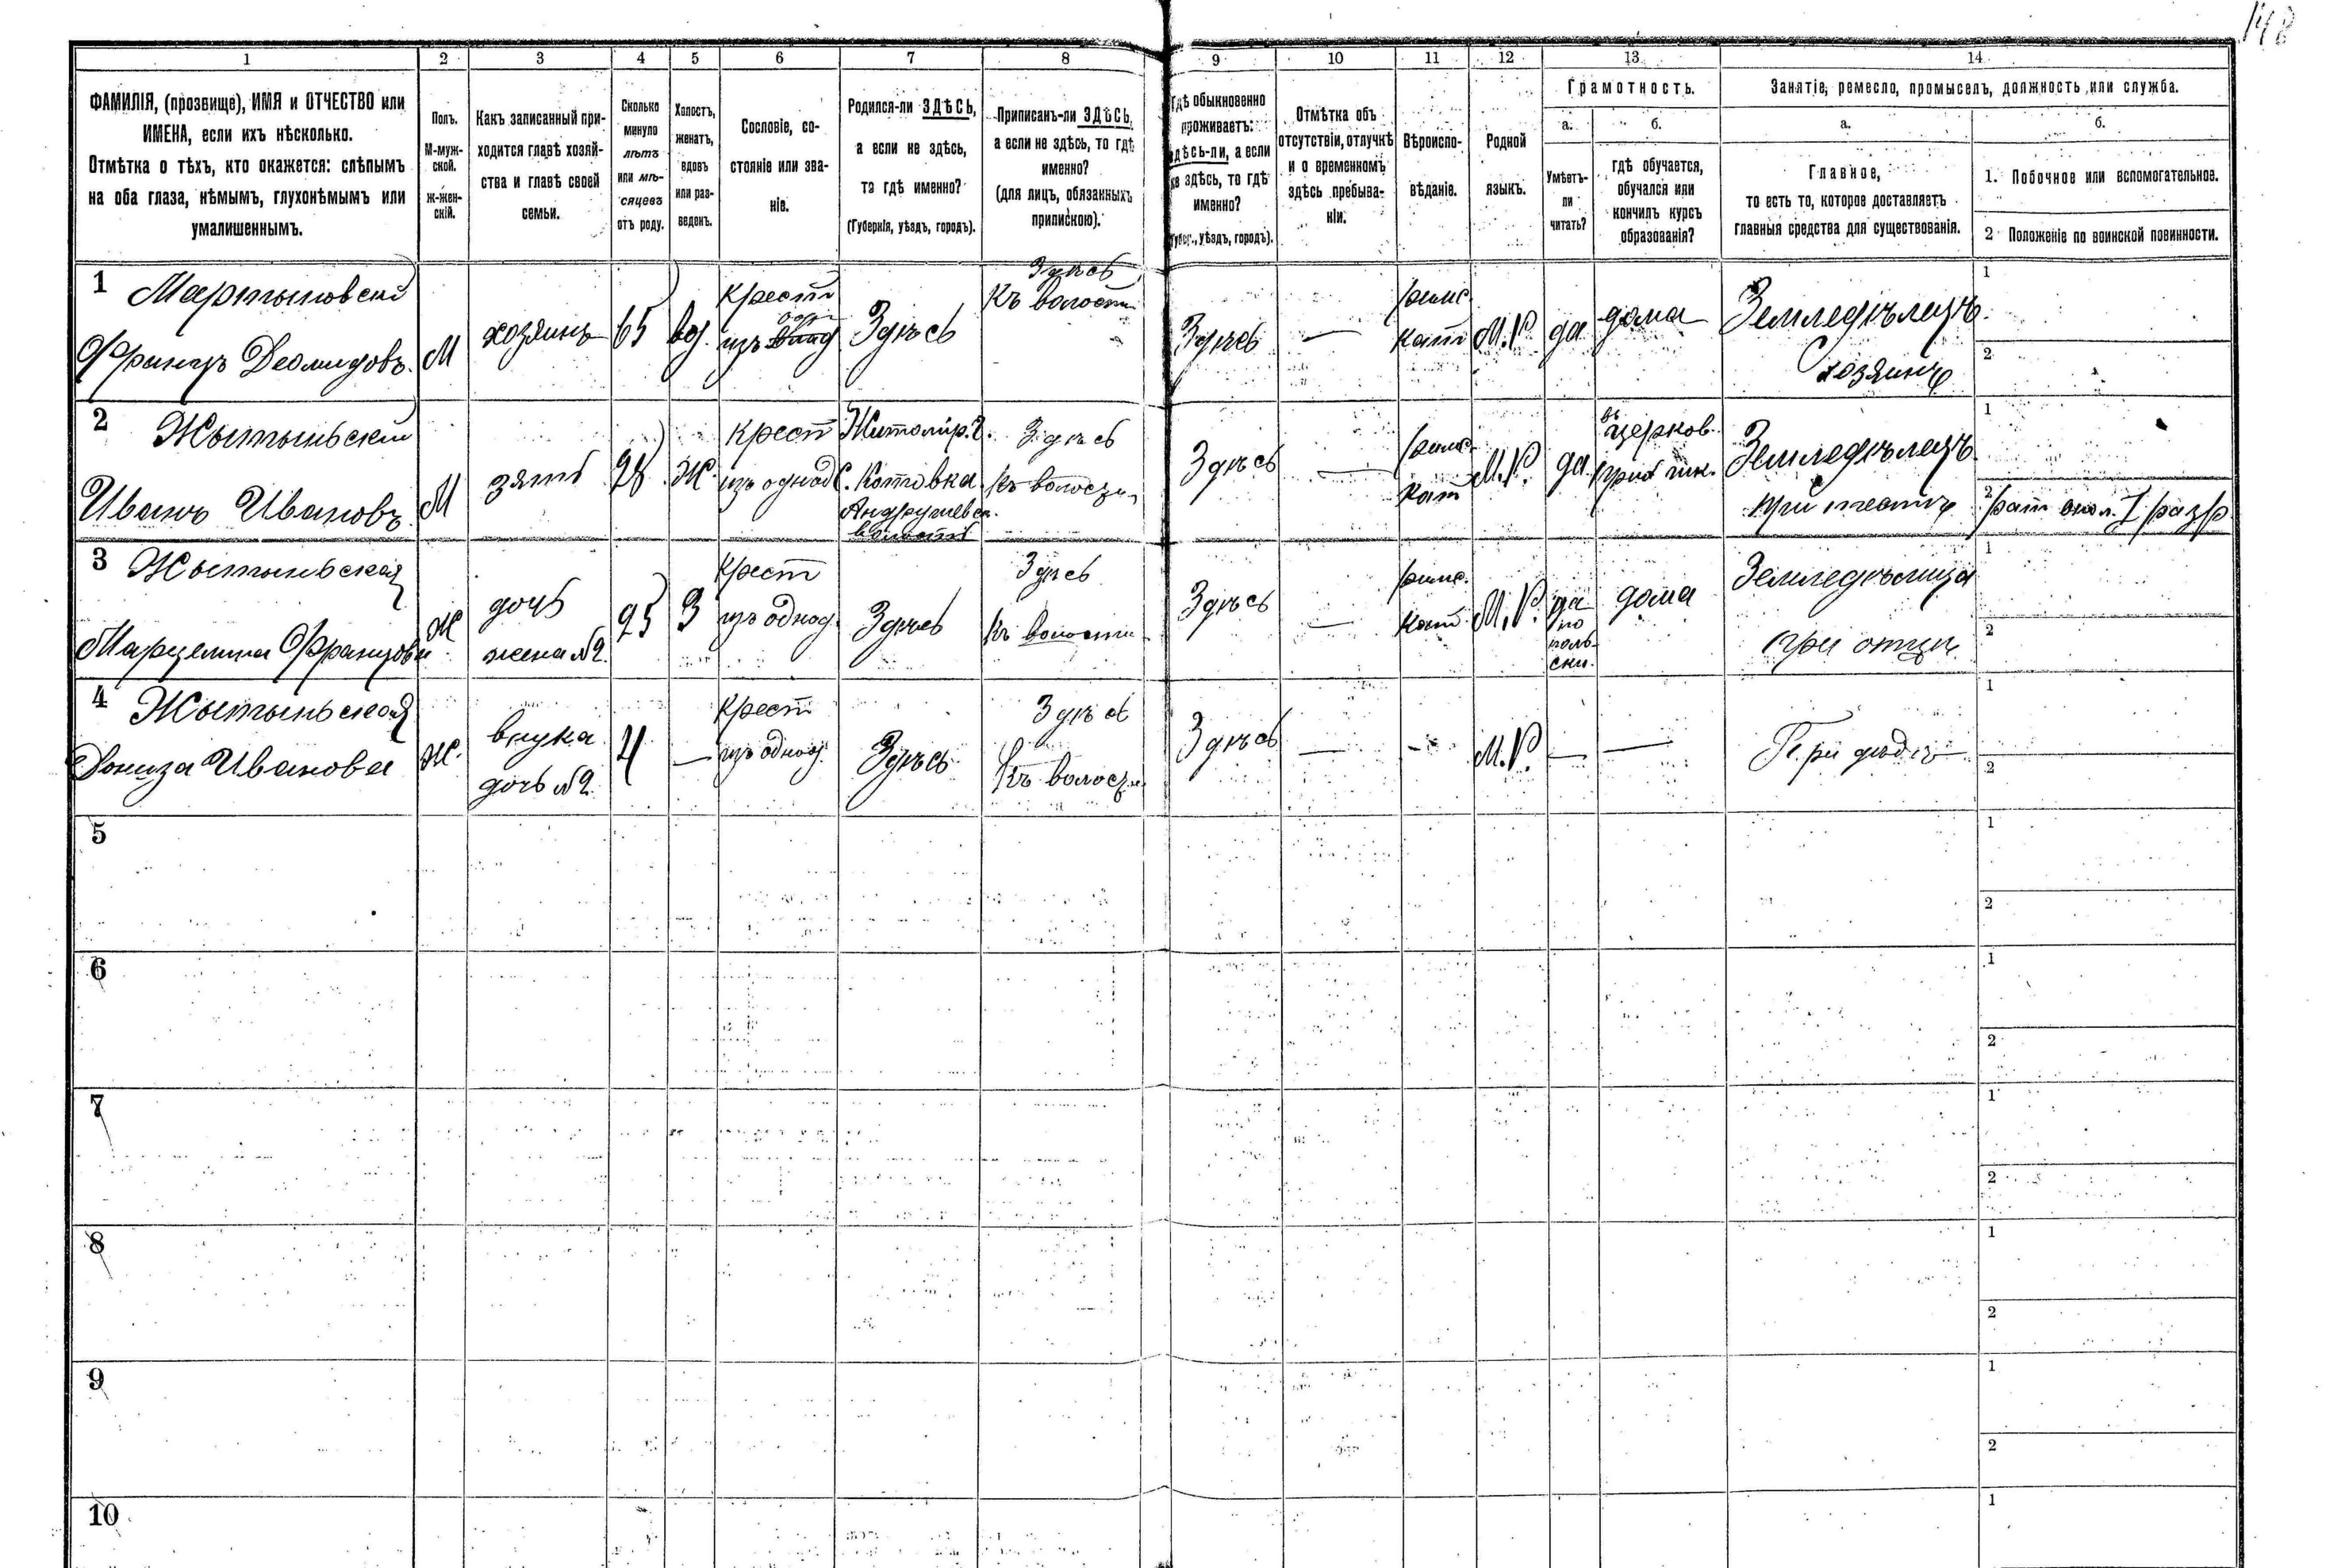 148
1 2 3 4 5 6 7 8 9 10 11 12 13 14
ФАМИЛІЯ, (прозвище), ИМЯ и ОТЧЕСТВО или
ИМЕНА, если ихъ нѣсколько.
Отмѣтка о тѣхъ, кто окажется: слѣпымъ
на оба глаза, нѣмымъ, глухонѣмымъ или
умалишеннымъ.
Полъ.
М-муж-
ской.
ж-жен-
скій.
Какъ записанный при-
ходится главѣ хозяй-
ства и главѣ своей
семьи.
Сколько
минуло
лѣтъ
или мѣ-
сяцевъ
отъ роду.
Холостъ,
женатъ,
вдовъ
или раз-
веденъ.
Сословіе, со-
стояніе или зва-
ніе.
Родился-ли ЗДѢСЬ,
а если не здѣсь,
то гдѣ именно?
(Губернія, уѣздъ, городъ).
Приписанъ-ли ЗДѢСЬ,
а если не здѣсь, то гдѣ
именно?
(для лицъ, обязанныхъ
припискою).
Гдѣ обыкновенно
проживаетъ:
здѣсь-ли, а если
не здѣсь, то гдѣ
именно?
(Губер., уѣздъ, городъ).
Отмѣтка объ
отсутствіи, отлучкѣ
и о временномъ
здѣсь пребыва-
ніи.
Вѣроиспо-
вѣданіе.
Родной
языкъ.
Грамотность.
а.
Умѣетъ-
ли
читать?
б.
гдѣ обучается,
обучался или
кончилъ курсъ
образованія?
Занятіе, ремесло, промыселъ, должность или служба.
а.
Главное,
то есть то, которое доставляетъ
главныя средства для существованія.
б.
1. Побочное или вспомогательное.
2 Положеніе по воинской повинности.
1 Мартыновскій
Францъ Деомидовъ.
М
хозяинъ
65
вд.
крест
изъ однод
Здѣсь
Здѣсь
къ волости
Здѣсь
—
римс.
кат
М.Р.
да
дома
Земледѣлецъ
хозяинъ
1
2
2 Жытыньскій
Иванъ Ивановъ
М
зять
28
Ж.
крест
изъ однод
Житомір. у.
с. Котовка
Андрушевск.
волости
Здѣсь
къ волости
Здѣсь
—
римс.
кат
М.Р.
да
въ
церков.
прих шк.
Земледѣлецъ
при тестѣ
1
2 рат опол. I разр
3 Жытыньская
Марцелина Францова
Ж
дочь
жена №2.
25
З
крест
изъ однод.
Здѣсь
Здѣсь
къ волости
Здѣсь
—
римс.
кат.
М.Р.
да
по
поль-
ски.
дома
Земледѣлица
при отцѣ
1
2
4 Жытыньская
Ивановна
Ж.
внука
дочь №2.
4
—
крест
изъ однод.
Здѣсь
Здѣсь
къ волости
Здѣсь
—
—
М.Р.
—
—
При дѣдѣ
1
2
5
1
2
6
1
2
7
1
2
8
1
2
9
1
2
10
1